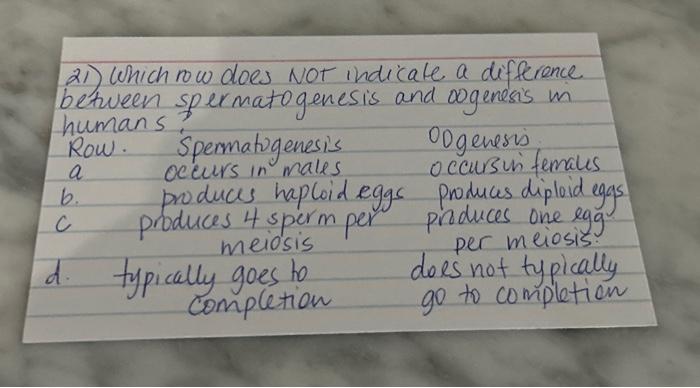 21) Which row does NOT indicate a difference
between spermatogenesis and oogenesis in
humans?
Row. Spermatogenesis Oogenesis.
a occurs in males occurs in females
b. produces haploid eggs produces diploid eggs
c produces 4 sperm per produces one egg
meiosis per meiosis.
d. typically goes to does not typically
completion go to completion